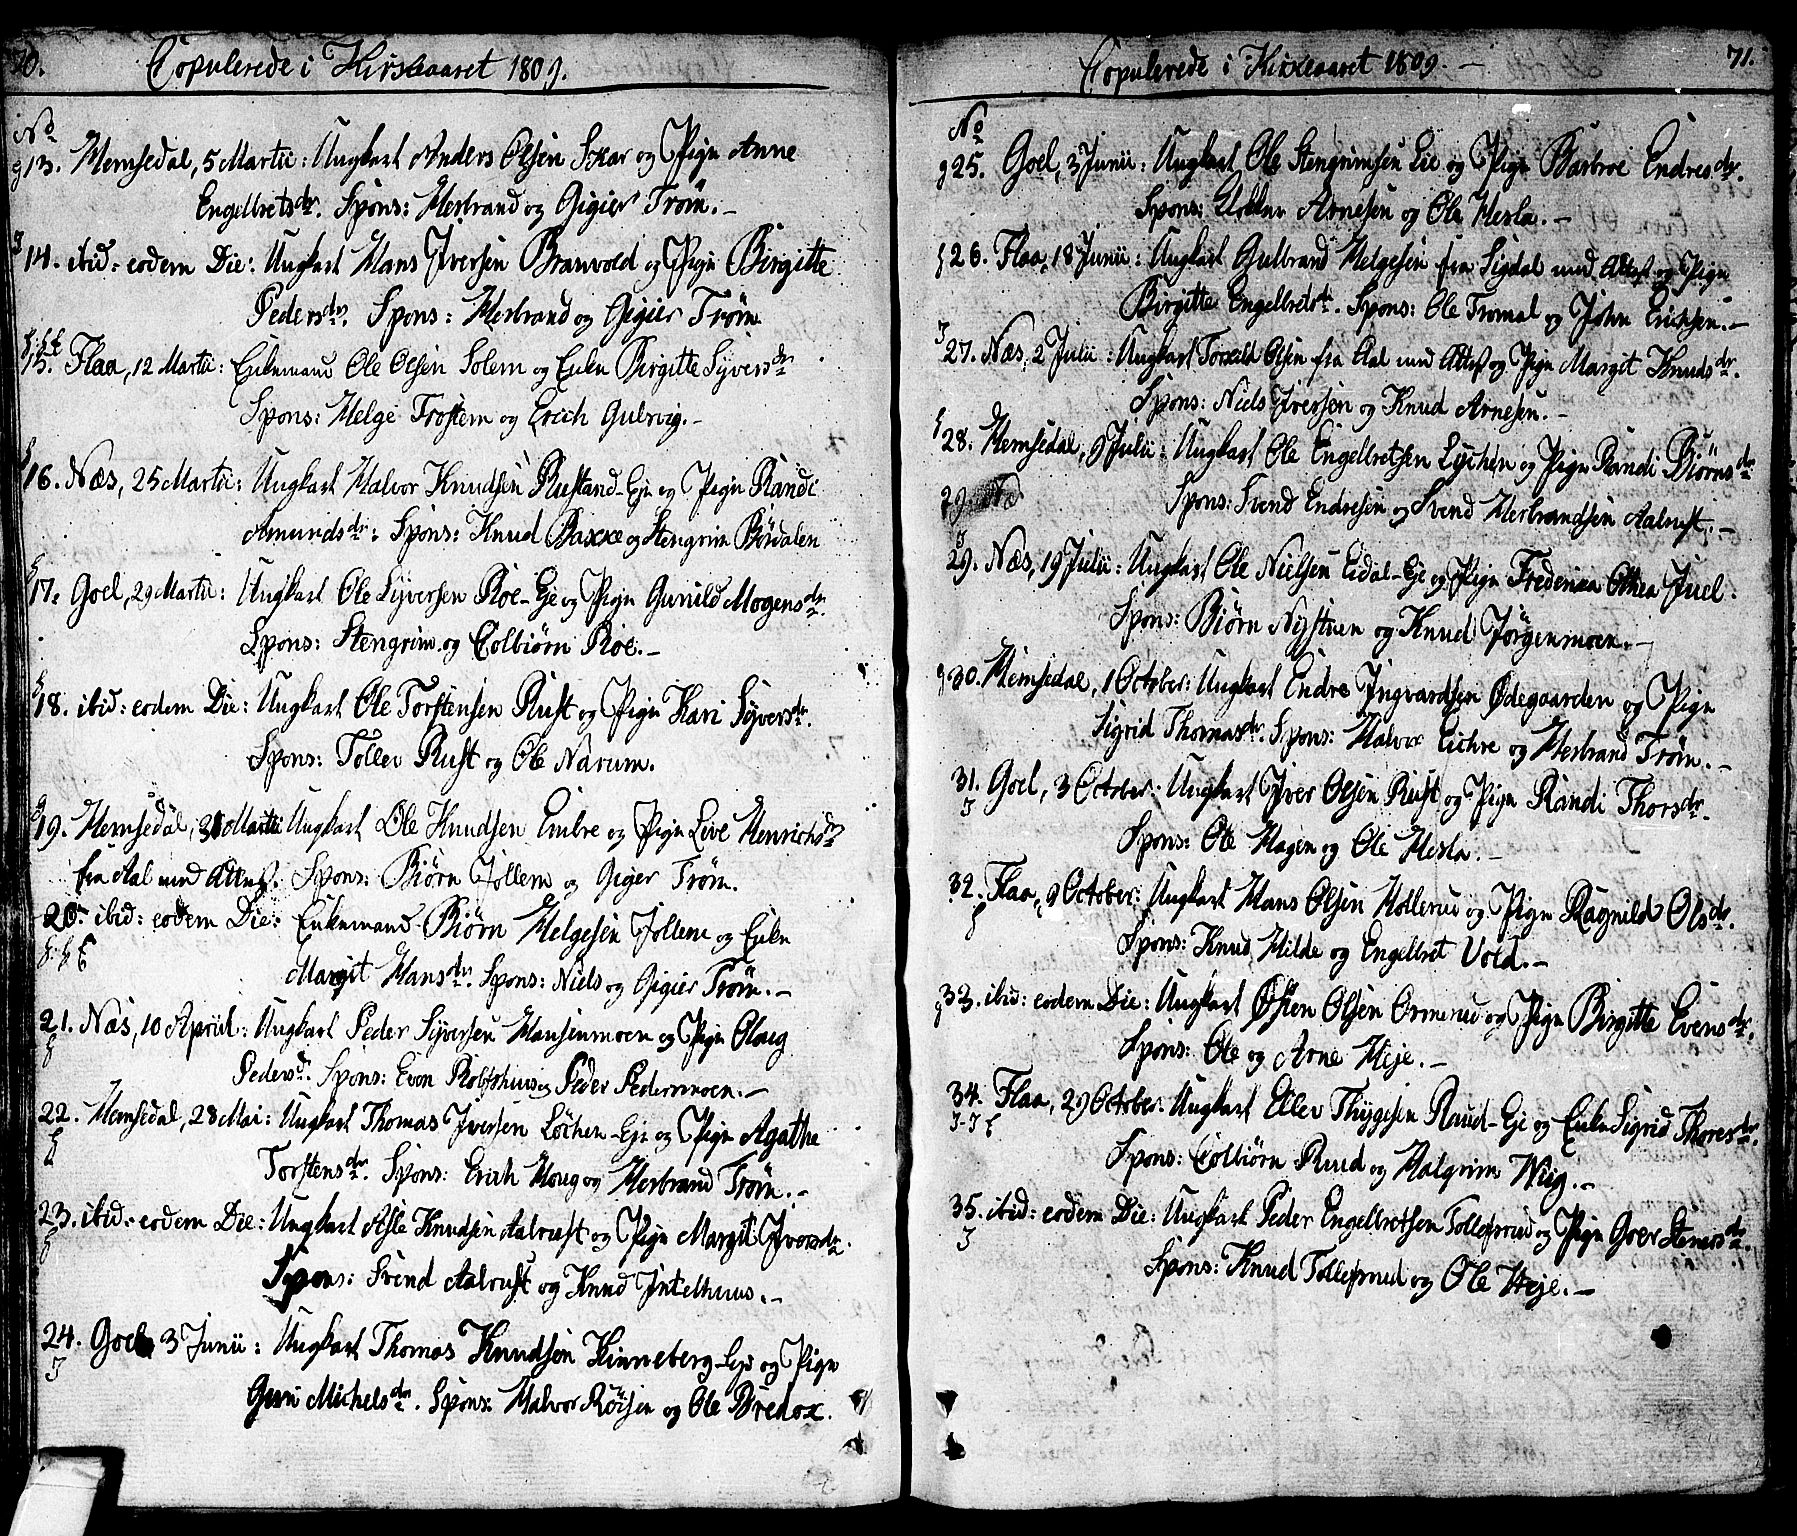 70. Copulerede i Kirkeaaret 1809.
No
13. Hemsedal, 5 Martii: Ungkarl Anders Olsen Skar og Pigen Anne
Engelbretsdr. Spons: Herbrand og Gigier Trøm.-
14. ibid: eodem Die: Ungkarl Hans Iversen Branvold og Pigen Birgitte
Pedersdr. Spons: Herbrand og Gigier Trøm
15. Flaa, 12 Martii: Enkemand Ole Olsen Solem og Enken Birgitte Syversdr
Spons: Helge Trostem og Erich Gulsvig.-
16. Næs, 25 Martii: Ungkarl Halvor Knudsen Rustand-Eje og Pigen Randi
Amundsdr: Spons: Knud Bakke og Stengrim Børdalen
17. Goel, 29 Martii: Ungkarl Ole Syversen Roe-Eje og Pigen Gunild Mogensdr.
Spons: Stengrim og Colbiørn Roe.-
18. ibid: eodem Die: Ungkarl Ole Torstensen Rust og Pigen Kari Syversdr.
Spons: Tollev Rust og Ole Narum.
19. Hemsedal, 31 Martii Ungkarl Ole Knudsen Embre og Pigen Live Henrichsdr
fra Aal med Attest. Spons: Biørn Jollem og Giger Trøm.
20. ibid: eodem Die: Enkemand Biørn Helgesen Jollem og Enken
Margit Hansdr. Spons: Niels og Gigier Trøm.-
21. Næs, 10 Apriil: Ungkarl Peder Syversen Hansenmoen og Pigen Olaug
Pedersd. Spons: Even Rolfshuus og Peder Pedermoen.-
22. Hemsedal, 28 Mai: Ungkarl Thomas Iversen Løchen-Eje og Pigen Agathe
Torstensdr. Spons: Erich Houg og Herbrand Trøm.-
23. ibid: eodem Die: Ungkarl Asle Knudsen Aalrust og Pigen Margit Iversdr.
Spons: Svend Aalrust og Knud Intelhuus.-
24. Goel 3 Junii: Ungkarl Thomas Knudsen Hinneberg-Eje og Pigen
Guri Michelsdr. Spons: Halvor Røisen og Ole Bredok.
Copulerede i Kirkeaaret 1809.- 71.
No
25. Goel, 3 Junii: Ungkarl Ole Stengrimsen Eie og Pigen Barbroe Endresdr.
Spons: Arnesen og Ole Hesla.-
26. Flaa, 18 Junii: Ungkarl Gulbrand Helgesen fra Sigdal med Attest og Pigen
Birgitte Engelbretsdr. Spons: Ole Tromal og John Erichsen.-
27. Næs, 2 Julii: Ungkarl Torkild Olsen fra Aal med Attest og Pigen Margit Knudsdr.
Spons: Niels Iversen og Knud Arnesen.-
28. Hemsedal, 9 Julii: Ungkarl Ole Engelbretsen Lÿchen og Pigen Randi Biørnsdr
Spons: Svend Endresen og Svend Herbrandsen Aalrust.-
29
29. Næs, 19 Julii: Ungkarl Ole Nielsen Eidal-Eje og Pigen Frederica Othea Juel.
Spons: Biørn Nystuen og Knud Jørgenmoen.-
30. Hemsedal, 1 October: Ungkarl Endre Ingvardsen Ødegaarden og Pigen
Sigrid Thomasdr. Spons: Halvor Eichre og Herbrand Trøm.-
31. Goel, 3 October: Ungkarl Iver Olsen Rust og Pigen Randi Thorsdr.
Spons: Ole Hagen og Ole Hesla.-
32. Flaa, 9 October: Ungkarl Hans Olsen Hollerud og Pigen Ragnild Olsdr.
Spons: Knud Hilde og Engelbret Vold.-
33. ibid: eodem Die: Ungkarl Østen Olsen Ormerud og Pigen Birgitte Evensdr.
Spons: Ole og Arne Heje.-
34. Flaa, 29 October: Ungkarl Ellev Thyggesen Ruud-Eje og Enken Sigrid Thoresdr.
Spons: Colbiørn Ruud og Halgrim Wiig.-
35. ibid: eodem Die: Ungkarl Peder Engelbretsen Tollefsrud og Pigen Goer Stenersdr.
Spons: Knud Tollefsrud og Ole Heje.-